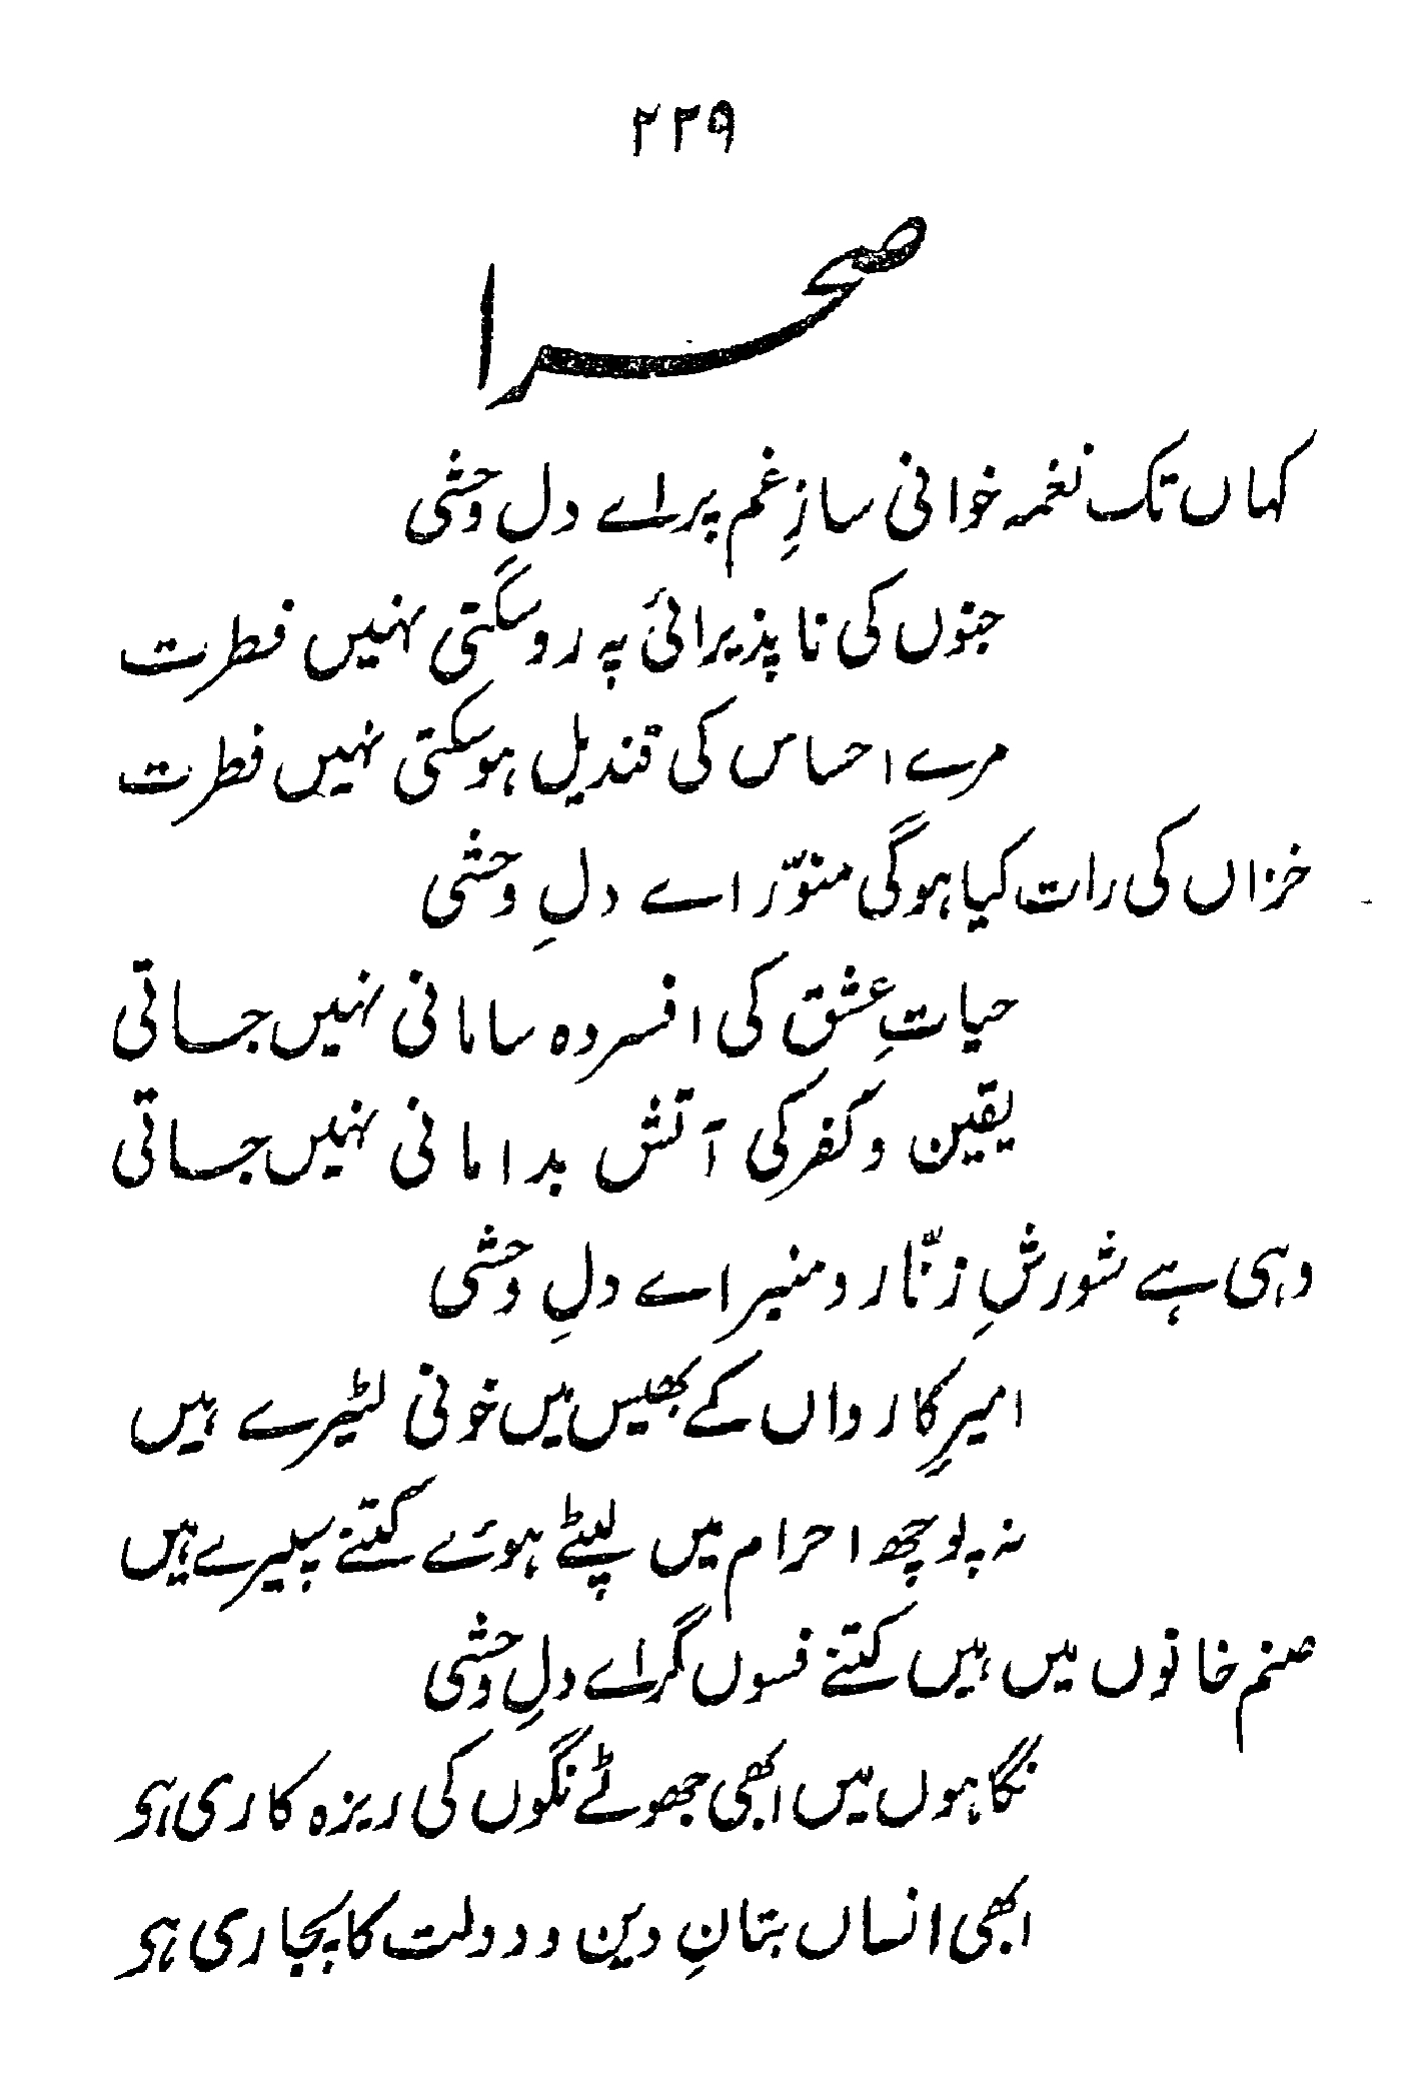 ۲۳۹
صحرا
کہاں تک نغمہ خوانی سازِ غم پر اے دلِ وحشی
جنوں کی نا پذیرائی پہ رو سکتی نہیں فطرت
مرے احساس کی قندیل ہو سکتی نہیں فطرت
خزاں کی رات کیا ہوگی منوّر اے دلِ وحشی
حیاتِ عشق کی افسردہ سامانی نہیں جاتی
یقین و کفر کی آتش بدامانی نہیں جاتی
وہی ہے شورشِ زنّار و منبر اے دلِ وحشی
امیرِ کارواں کے بھیس میں خونی لٹیرے ہیں
نہ پوچھ احرام میں لپٹے ہوئے کتنے سپیرے ہیں
صنم خانوں میں ہیں کتنے فسوں گر اے دلِ وحشی
نگاہوں میں ابھی جھوٹے نگوں کی ریزہ کاری ہی
ابھی انساں بتانِ دین و دولت کا پجاری ہی